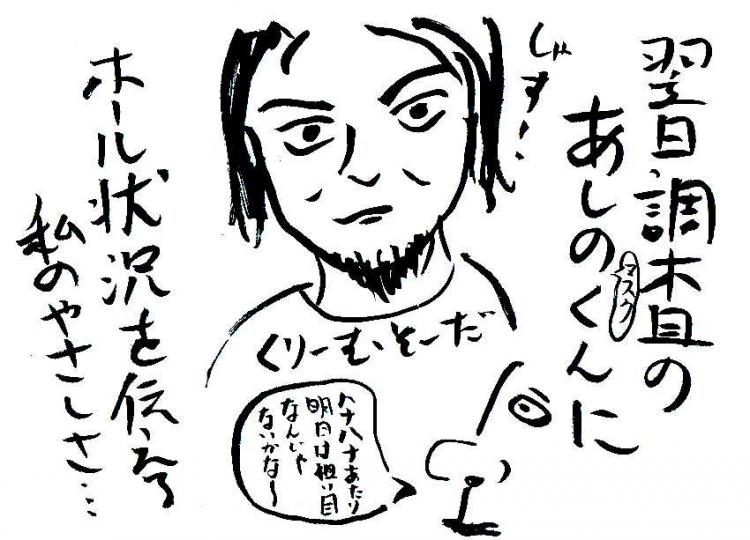 翌日調査の
あしのくんに
マスク
じゃす…
くりーむそーだ
ハナハナあたり
明日は狙い目
なんじゃ
ないかな〜
ホール状況を伝える
私のやさしさ…